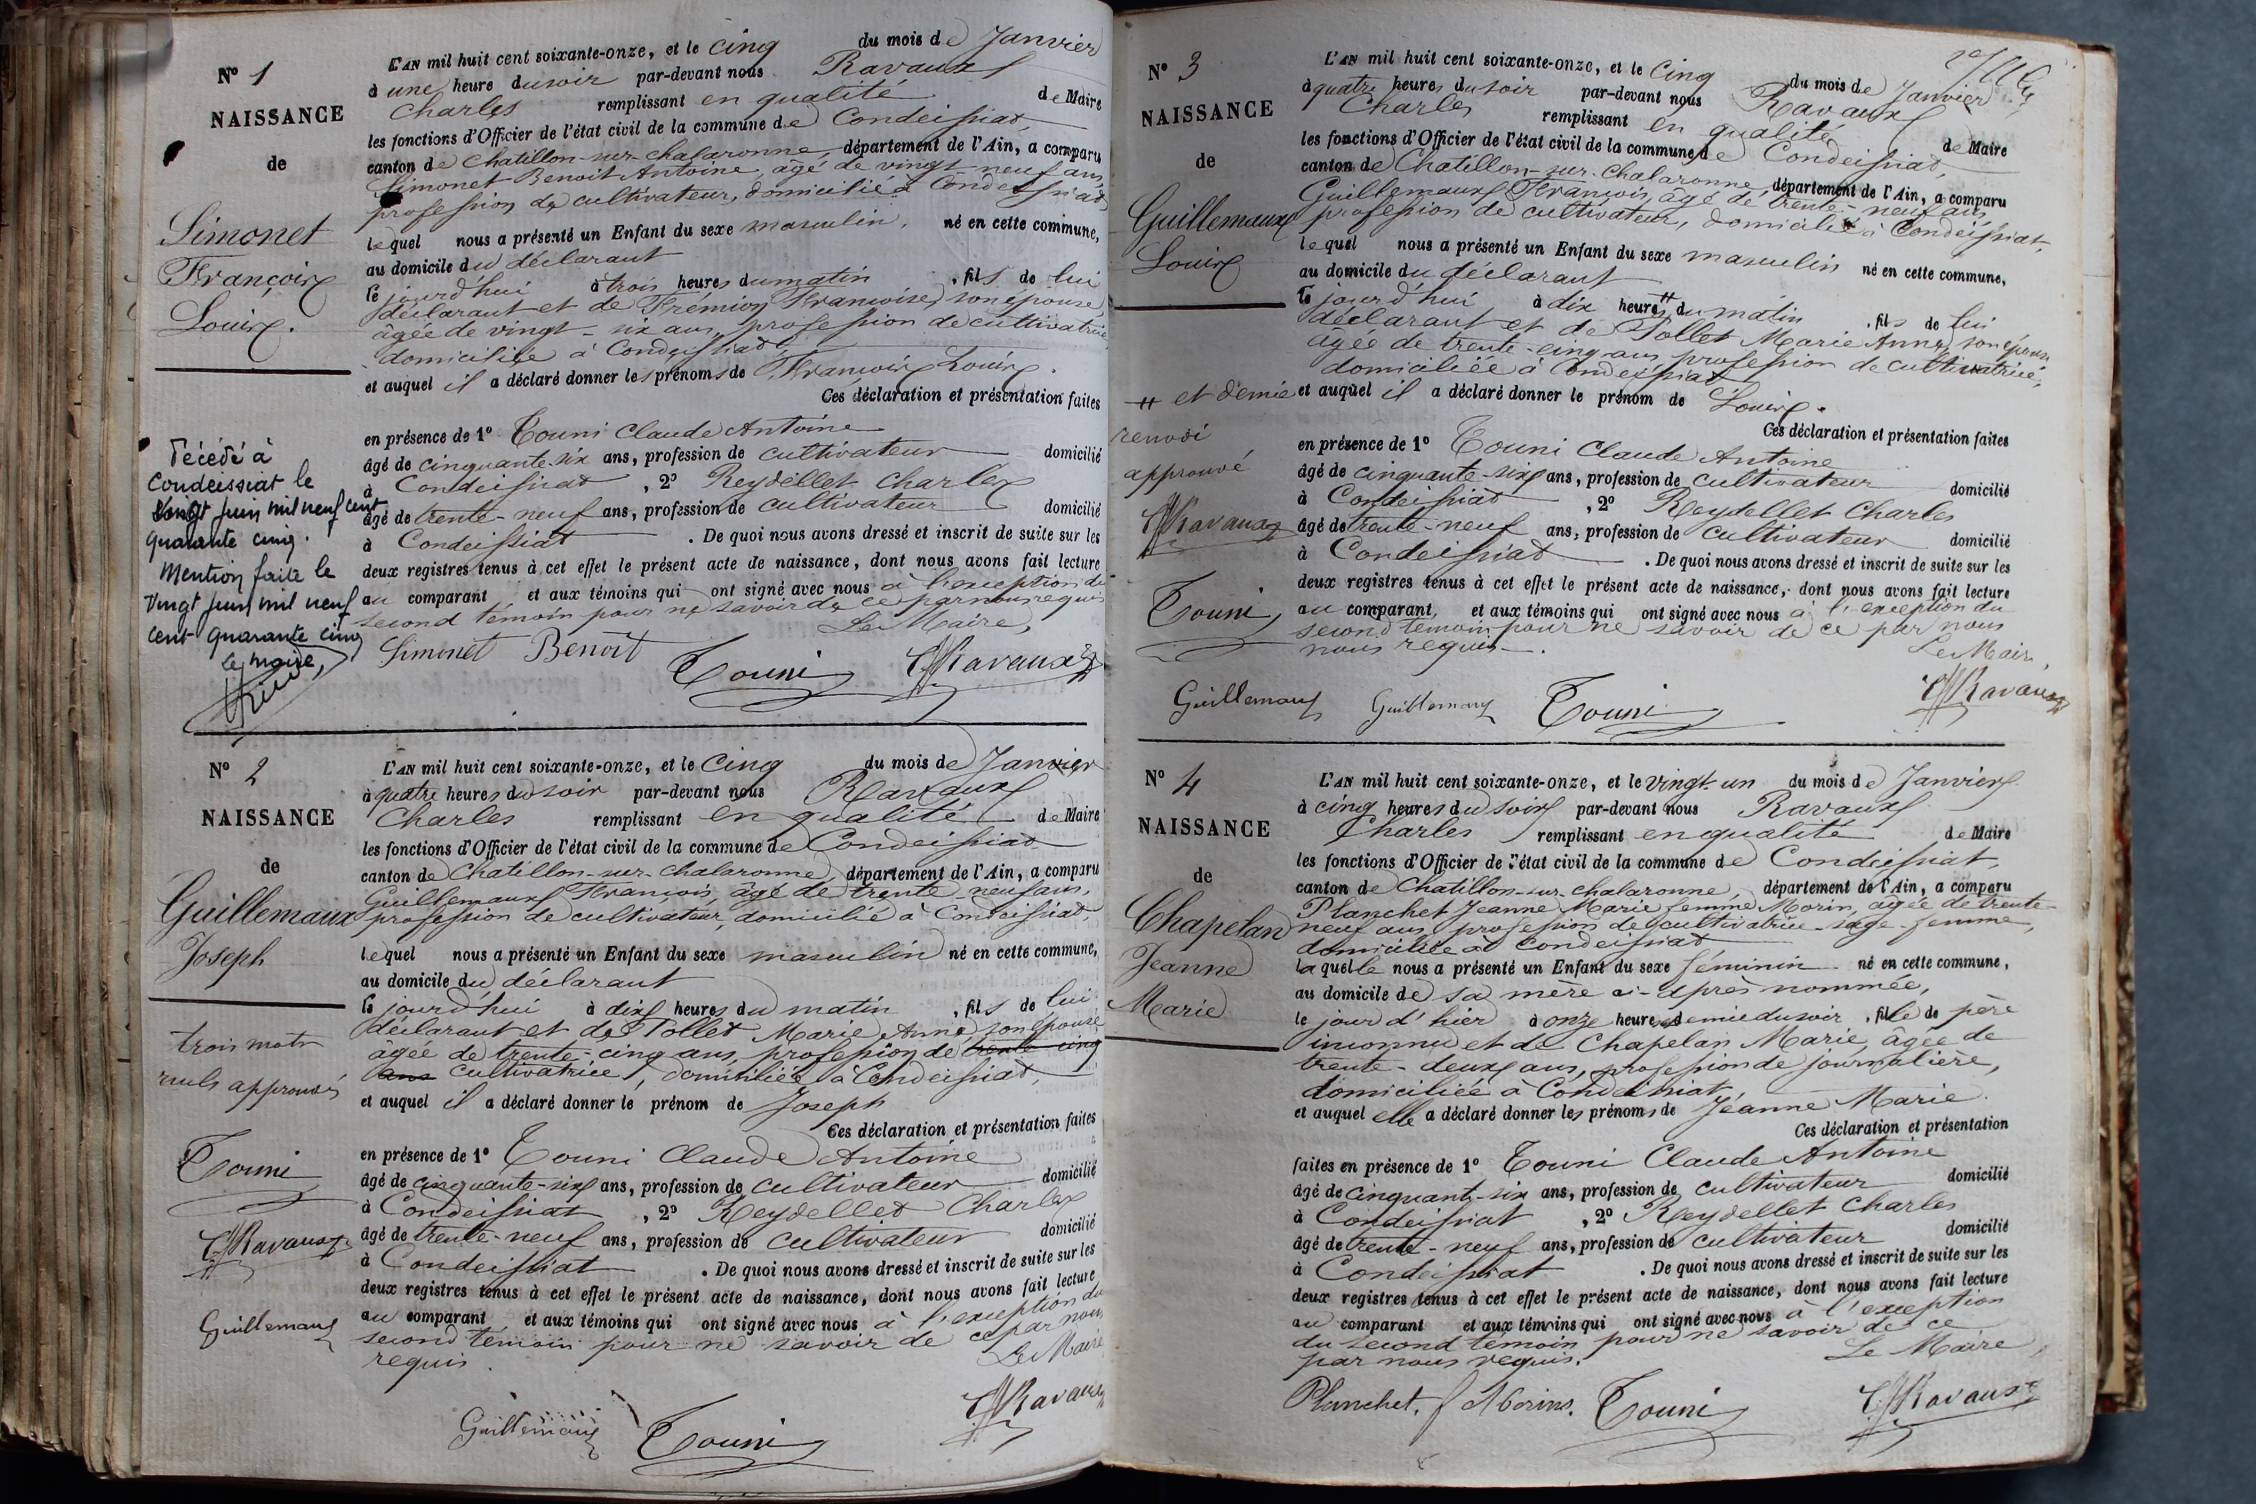 N° 1
NAISSANCE
de
Simonet
François
Louis.
Décédé à
Condeissiat le
vingt juin mil neuf cent
quarante cinq.
Mention faite le
vingt juin mil neuf
cent quarante cinq
Le maire,
L'AN mil huit cent soixante-onze, et le cinq du mois de Janvier
à une heure du soir par-devant nous Ravaux
Charles remplissant en qualité de Maire
les fonctions d'Officier de l'état civil de la commune de Condeissiat,
canton de Chatillon-sur-chalaronne, département de l'Ain, a comparu
Simonet Benoit Antoine, âgé de vingt-neuf ans,
profession de cultivateur, domicilié à Condeissiat
lequel nous a présenté un Enfant du sexe masculin, né en cette commune,
au domicile du déclarant
le jourd'hui à trois heures du matin, fils de lui
déclarant et de Frémion Françoise, son épouse,
âgée de vingt-six ans, profession de cultivatrice
domiciliée à Condeissiat,
et auquel il a déclaré donner les prénoms de François Louis.
Ces déclaration et présentation faites
en présence de 1° Touni Claude Antoine
âgé de cinquante-six ans, profession de cultivateur domicilié
à Condeissiat, 2° Reydellet Charles
âgé de trente-neuf ans, profession de cultivateur domicilié
à Condeissiat. De quoi nous avons dressé et inscrit de suite sur les
deux registres tenus à cet effet le présent acte de naissance, dont nous avons fait lecture
au comparant et aux témoins qui ont signé avec nous à l'exception du
second témoin pour ne savoir de ce par nous requis
Le Maire,
Simonet Benoit Touni Ch Ravaux
N° 2
NAISSANCE
de
Guillemaux
Joseph
trois mots
nuls approuvés
Touni
Ch Ravaux
Guillemaux
L'AN mil huit cent soixante-onze, et le cinq du mois de Janvier
à quatre heures du soir par-devant nous Ravaux
Charles remplissant en qualité de Maire
les fonctions d'Officier de l'état civil de la commune de Condeissiat
canton de Chatillon-sur-chalaronne, département de l'Ain, a comparu
Guillemaux François, âgé de trente-neuf ans,
profession de cultivateur, domicilié à Condeissiat,
lequel nous a présenté un Enfant du sexe masculin né en cette commune,
au domicile du déclarant
le jourd'hui à dix heures du matin, fils de lui
déclarant et de Pollet Marie Anne, son épouse
âgée de trente-cinq ans, profession de trente cinq
ans cultivatrice, domiciliée à Condeissiat,
et auquel il a déclaré donner le prénom de Joseph
Ces déclaration et présentation faites
en présence de 1° Touni Claude Antoine
âgé de cinquante-six ans, profession de cultivateur domicilié
à Condeissiat, 2° Reydellet Charles
âgé de trente-neuf ans, profession de cultivateur domicilié
à Condeissiat. De quoi nous avons dressé et inscrit de suite sur les
deux registres tenus à cet effet le présent acte de naissance, dont nous avons fait lecture
au comparant et aux témoins qui ont signé avec nous à l'exception du
second témoin pour ne savoir de ce par nous
requis. Le Maire
Guillemaux Touni Ch Ravaux
N° 3
NAISSANCE
de
Guillemaux
Louis
et demie
renvoi
approuvé
Ch Ravaux
Touni
L'AN mil huit cent soixante-onze, et le cinq du mois de Janvier
à quatre heures du soir par-devant nous Ravaux
Charles remplissant en qualité de Maire
les fonctions d'Officier de l'état civil de la commune de Condeissiat,
canton de Chatillon-sur-chalaronne, département de l'Ain, a comparu
Guillemaux François, âgé de trente-neuf ans,
profession de cultivateur, domicilié à Condeissiat,
lequel nous a présenté un Enfant du sexe masculin né en cette commune,
au domicile du déclarant
le jourd'hui à dix heures du matin, fils de lui
déclarant et de Pollet Marie Anne, son épouse
âgée de trente-cinq ans, profession de cultivatrice,
domiciliée à Condeissiat,
et auquel il a déclaré donner le prénom de Louis.
Ces déclaration et présentation faites
en présence de 1° Touni Claude Antoine
âgé de cinquante-six ans, profession de cultivateur domicilié
à Condeissiat, 2° Reydellet Charles
âgé de trente-neuf ans, profession de cultivateur domicilié
à Condeissiat. De quoi nous avons dressé et inscrit de suite sur les
deux registres tenus à cet effet le présent acte de naissance, dont nous avons fait lecture
au comparant, et aux témoins qui ont signé avec nous à l'exception du
second témoin pour ne savoir de ce par nous
nous requis. Le Maire,
Guillemaux Guillemaux Touni Ch Ravaux
N° 4
NAISSANCE
de
Chapelan
Jeanne
Marie
L'AN mil huit cent soixante-onze, et le vingt-un du mois de Janvier
à cinq heures du soir par-devant nous Ravaux
Charles remplissant en qualité de Maire
les fonctions d'Officier de l'état civil de la commune de Condeissiat,
canton de Chatillon-sur-chalaronne, département de l'Ain, a comparu
Planchet Jeanne Marie femme Morin, âgée de trente-
neuf ans, profession de cultivatrice-sage-femme,
domiciliée à Condeissiat
laquelle nous a présenté un Enfant du sexe féminin né en cette commune,
au domicile de sa mère ci-après nommée,
le jour d'hier à onze heures demie du soir, fille de père
inconnu et de Chapelan Marie, âgée de
trente-deux ans, profession de journalière,
domiciliée à Condeissiat,
et auquel elle a déclaré donner les prénoms de Jeanne Marie.
Ces déclaration et présentation
faites en présence de 1° Touni Claude Antoine
âgé de cinquante-six ans, profession de cultivateur domicilié
à Condeissiat, 2° Reydellet Charles
âgé de trente-neuf ans, profession de cultivateur domicilié
à Condeissiat. De quoi nous avons dressé et inscrit de suite sur les
deux registres tenus à cet effet le présent acte de naissance, dont nous avons fait lecture
au comparant et aux témoins qui ont signé avec nous à l'exception
du second témoin pour ne savoir de ce
par nous requis. Le Maire,
Planchet, f Morins. Touni Ch Ravaux